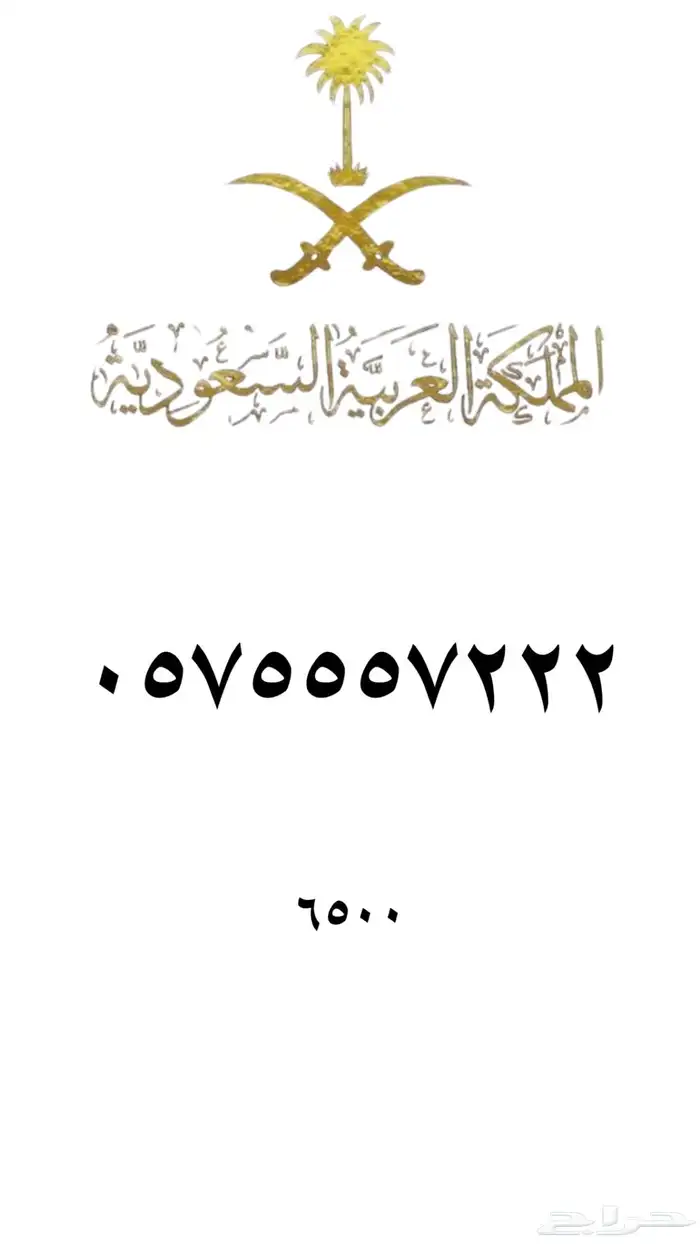 المملكة العربية السعودية
٠٥٧٥٥٥٧٢٢٢
٦٥٠٠
حراج